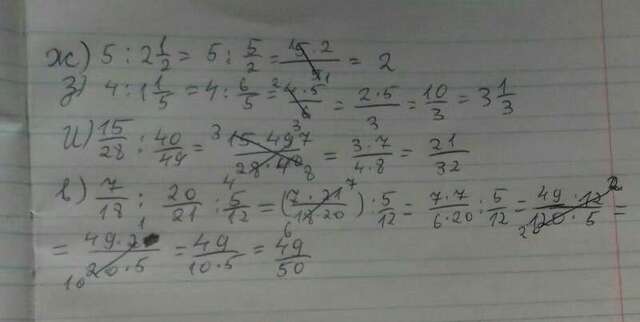 ж) 5 : 2 1/2 = 5 : 5/2 = 5·2/5 = 2
з) 4 : 1 1/5 = 4 : 6/5 = 4·5/6 = 2·5/3 = 10/3 = 3 1/3
и) 15/28 : 40/49 = 15·49/28·40 = 3·7/4·8 = 21/32
в) 7/18 : 20/21 : 5/12 = (7·21/18·20) · 5/12 = 7·7/6·20 : 5/12 = 49·12/120·5 =
= 49·2/20·5 = 49/10·5 = 49/50